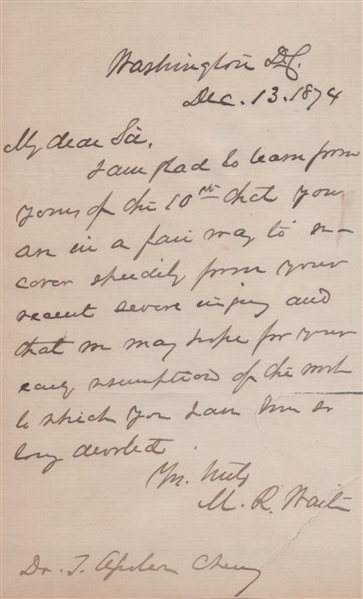 Washington D.C.
Dec. 13. 1874
My dear Sir,
I am glad to learn from
yours of the 10th that you
are in a fair way to re-
cover speedily from your
recent severe injury and
that we may hope for your
early resumption of the work
to which you have been so
long devoted.
Yrs. truly
M. R. Waite
Dr. J.